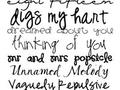 eight fifteen
digs my hart
dreamed about you
thinking of you
mr and mrs popsicle
Unnamed Melody
Vaguely Repulsive